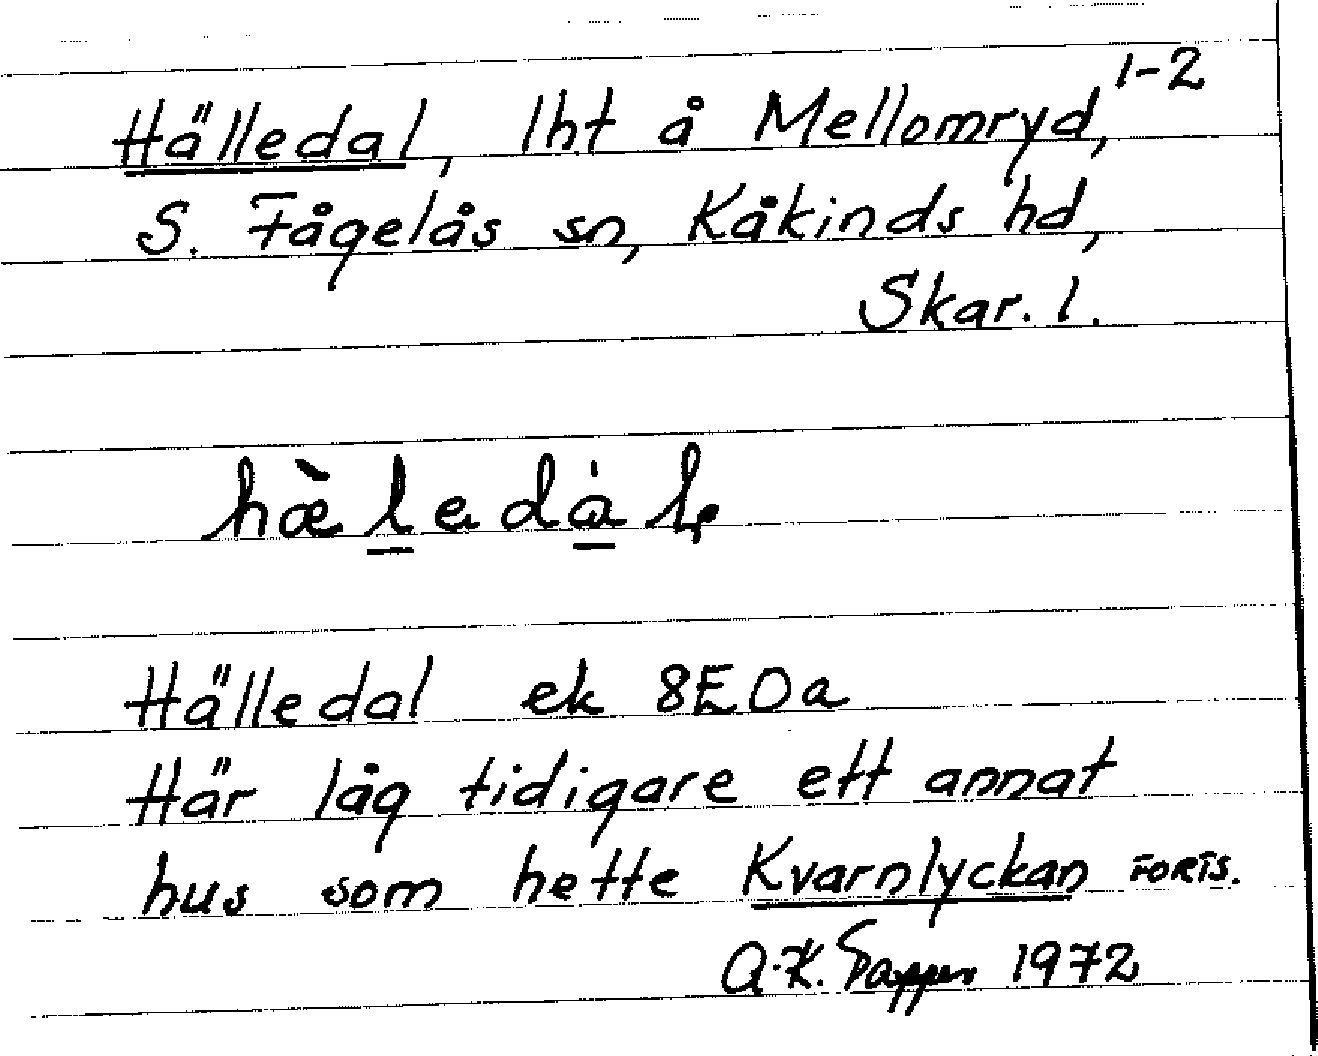 Hälledal, lht å Mellomryd, 1-2
S. Fågelås sn, Kåkinds hd,
Skar. l.
hæ̀ledàl
Hälledal ek 8E0a
Här låg tidigare ett annat
hus som hette Kvarnlyckan FORTS.
A.-K. 1972